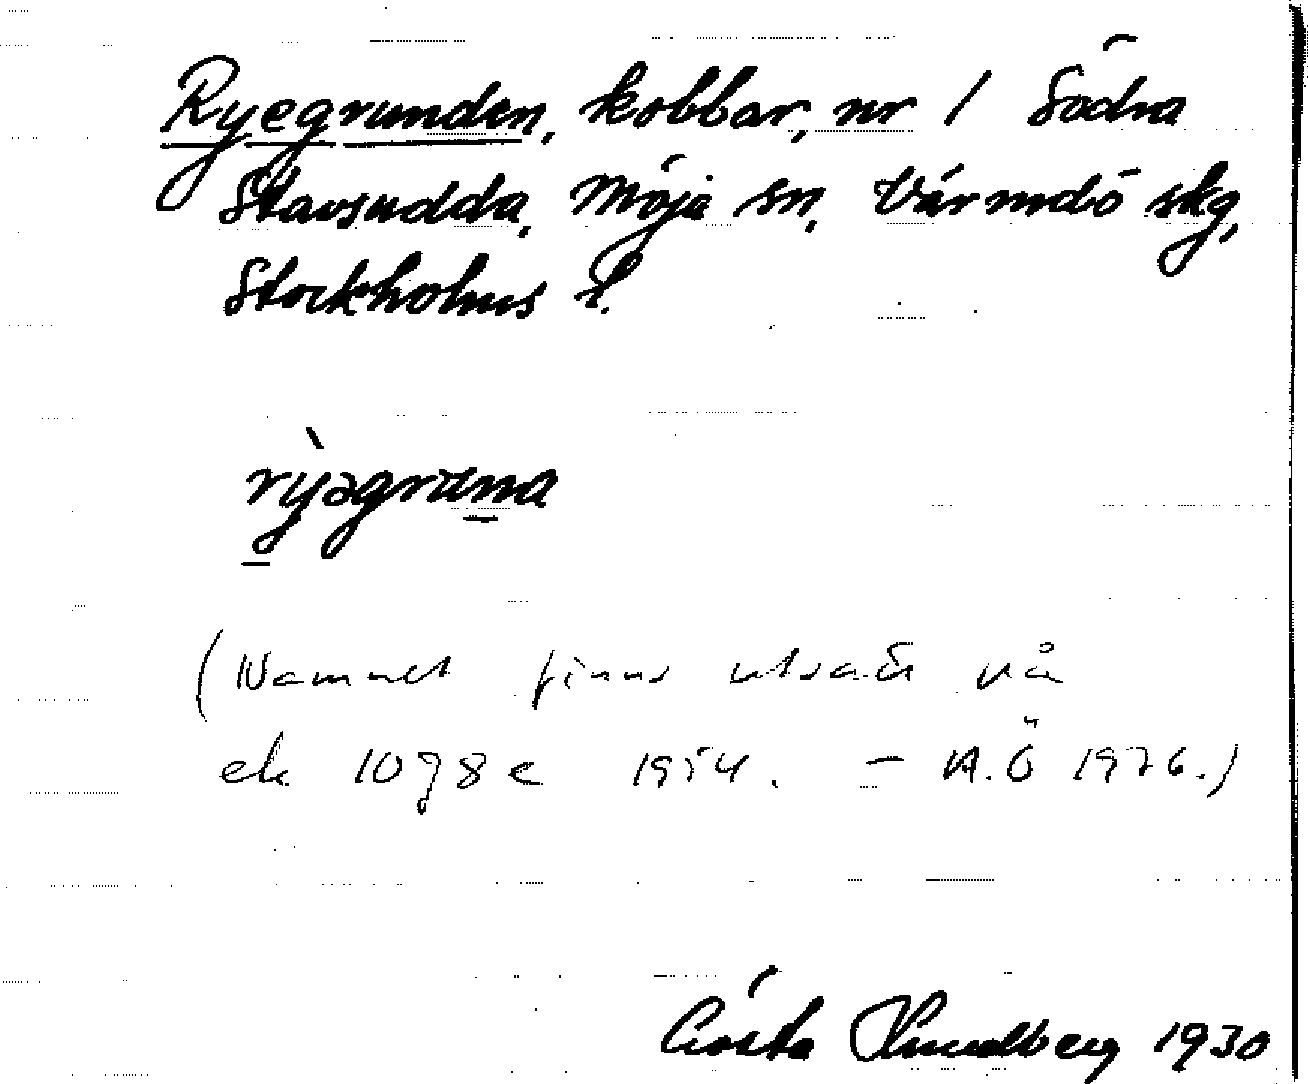 Ryegrunden, kobbar, nr 1 Södra
Stavsudda, Möja sn, Värmdö skg,
Stockholms l.
rỳəgruna
(Namnet finns utsatt på
ek 10J8e 1954. – A.Ö 1976.)
Gösta Lundberg 1930